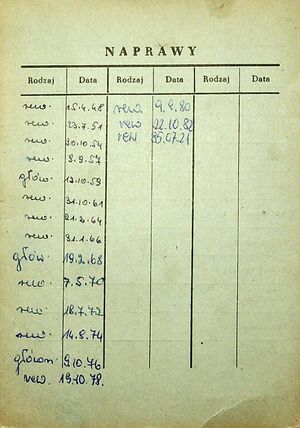 NAPRAWY
Rodzaj Data Rodzaj Data Rodzaj Data
rew. 15.4.48 rew. 9.9.80
rew. 23.7.51 rew 22.10.82
rew. 30.10.54 rew
rew. 8.9.57
główn. 12.10.59
rew. 31.10.61
rew. 21.2.64
rew. 31.1.66
główn. 19.2.68
rew. 7.5.70
rew. 18.7.72
rew. 14.9.74
główn 9.10.76
rew. 19.10.78.